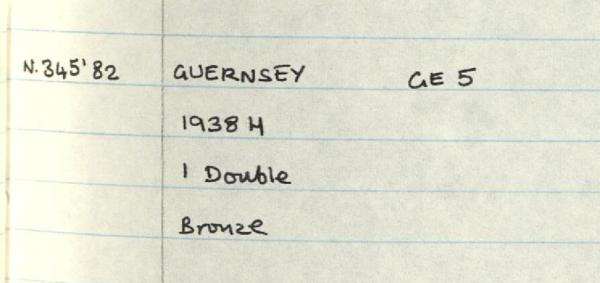 N.345'82 GUERNSEY GE 5
1938 H
1 Double
Bronze